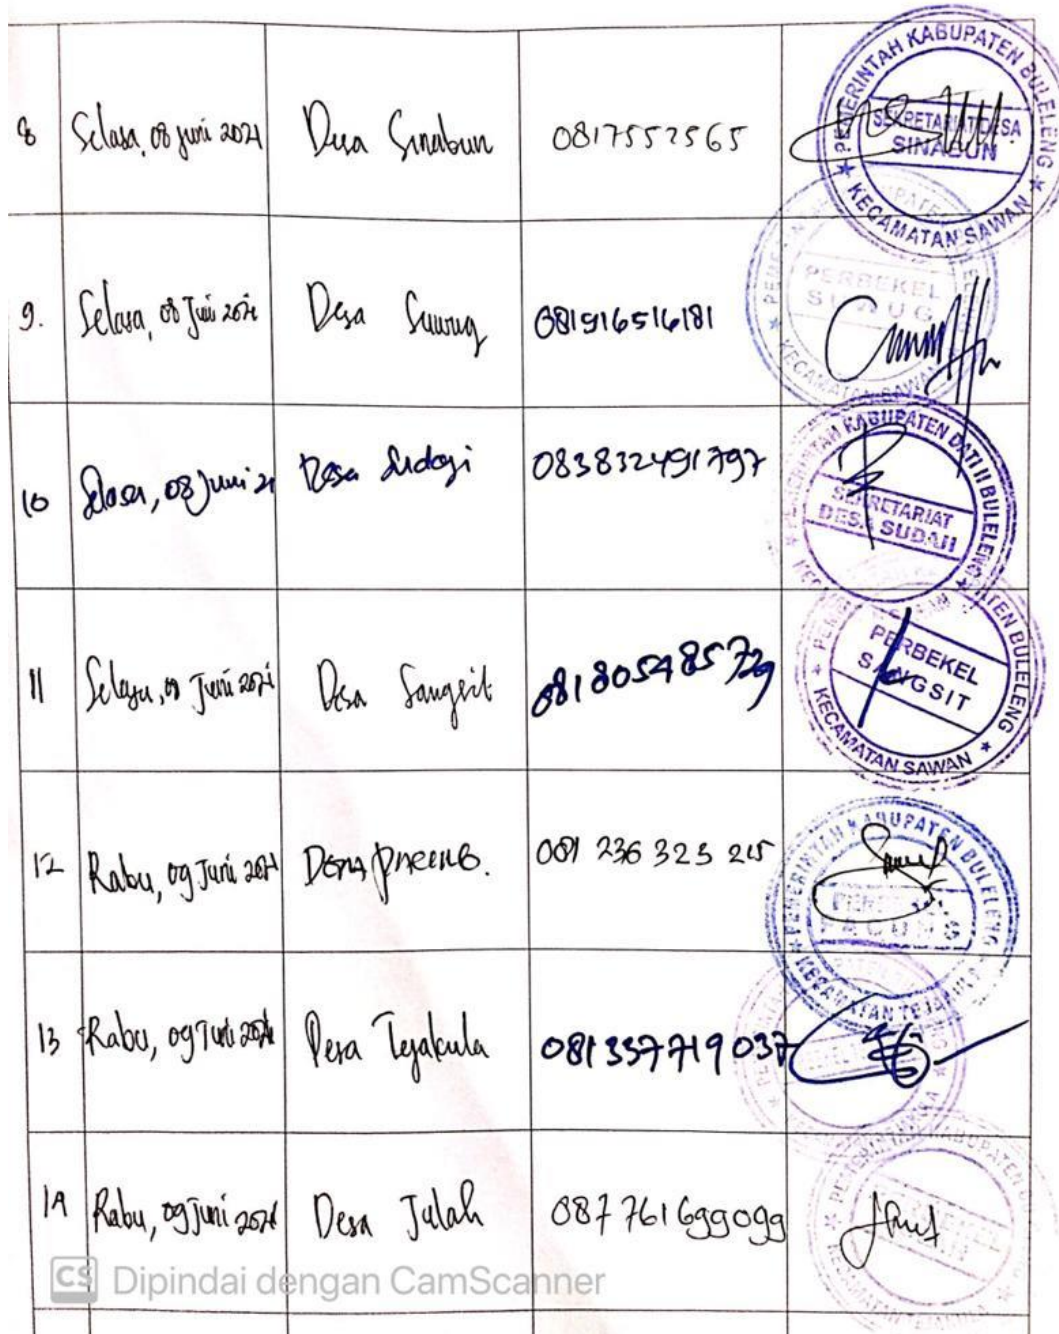 8 Selasa, 08 juni 2021 Desa Sinabun 0817552565
PEMERINTAH KABUPATEN BULELENG
SEKRETARIAT DESA
SINABUN
KECAMATAN SAWAN
9. Selasa, 08 Juni 2021 Desa Suwug 081916516181
PERBEKEL
SUWUG
KECAMATAN SAWAN
10 Selasa, 08 Juni 21 Desa Sudaji 083832491797
PEMERINTAH KABUPATEN DATI II BULELENG
SEKRETARIAT
DESA SUDAJI
11 Selasa, 08 Juni 2021 Desa Sangsit 081805485729
PERBEKEL
SANGSIT
KECAMATAN SAWAN
12 Rabu, 09 Juni 2021 Desa Pacung. 081 236 323 215
PEMERINTAH KABUPATEN BULELENG
PACUNG
KECAMATAN TEJAKULA
13 Rabu, 09 Juni 2021 Desa Tejakula 081337719037
14 Rabu, 09 juni 2021 Desa Julah 087761699099
CS Dipindai dengan CamScanner